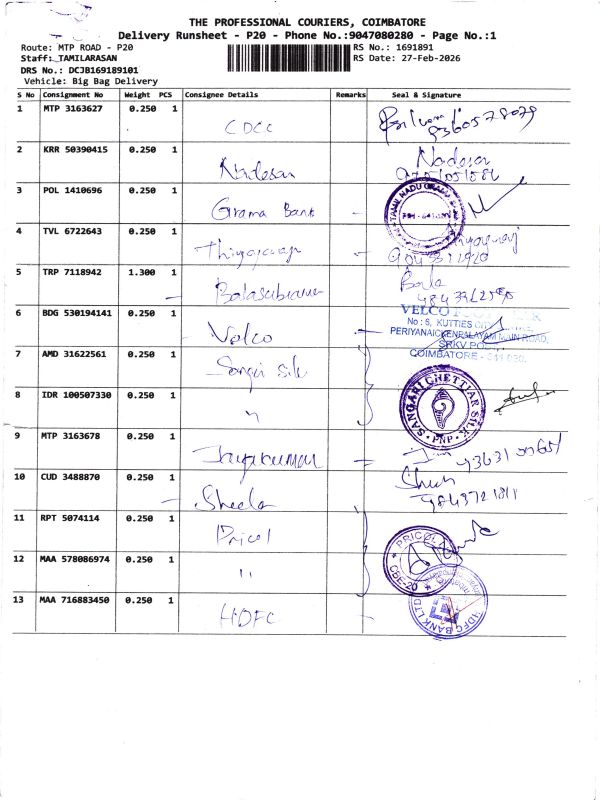 THE PROFESSIONAL COURIERS, COIMBATORE
Delivery Runsheet - P20 - Phone No.:9047080280 - Page No.:1
Route: MTP ROAD - P20
RS No.: 1691891
Staff: TAMILARASAN
RS Date: 27-Feb-2026
DRS No.: DCJB169189101
Vehicle: Big Bag Delivery
S No Consignment No Weight PCS Consignee Details Remarks Seal & Signature
1 MTP 3163627 0.250 1
CDCC
2 KRR 50390415 0.250 1
Nadesan
Nadesan
3 POL 1410696 0.250 1
Grama Bank
TAMIL NADU GRAMA
4 TVL 6722643 0.250 1
5 TRP 7118942 1.300 1
6 BDG 530194141 0.250 1
Velco
VELCO
No: 6, KUTTIES
PERIYANAICKENPALAYAM MAIN ROAD,
SRKV PO
COIMBATORE - 641 020.
7 AMD 31622561 0.250 1
8 IDR 100507330 0.250 1
"
SANGARI CHETTIAR SILK
PNP
9 MTP 3163678 0.250 1
Jayakumar
10 CUD 3488870 0.250 1
Sheela
9843721811
11 RPT 5074114 0.250 1
Pricol
PRICOL
CBE-20
12 MAA 578086974 0.250 1
"
13 MAA 716883450 0.250 1
HDFC
HDFC BANK LTD